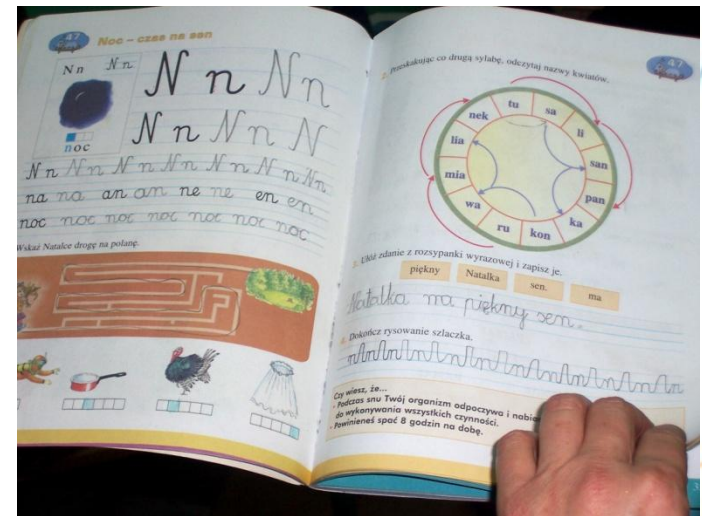 47
Noc – czas na sen
N n N n
N n N n
noc
N n N n N
N n N n N n N n N n N n N n
na na an an ne ne en en
noc noc noc noc noc noc noc
Wskaż Natalce drogę na polanę.
47
2. Przeskakując co drugą sylabę, odczytaj nazwy kwiatów.
tu
sa
li
san
pan
ka
kon
ru
wa
mia
lia
nek
3. Ułóż zdanie z rozsypanki wyrazowej i zapisz je.
piękny Natalka sen. ma
Natalka ma piękny sen.
4. Dokończ rysowanie szlaczka.
Czy wiesz, że...
• Podczas snu Twój organizm odpoczywa i nabiera
do wykonywania wszystkich czynności.
• Powinieneś spać 8 godzin na dobę.